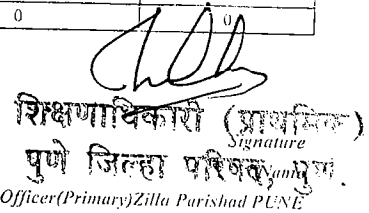 0 0
शिक्षणाधिकारी (प्राथमिक)
Signature
पुणे जिल्हा परिषद, पुणे.
Officer(Primary)Zilla Parishad PUNE